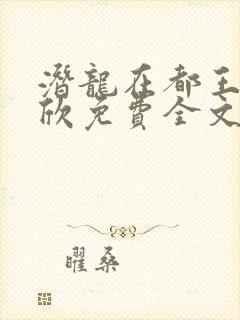 潛龍在都王
欣免費全文
曜桑